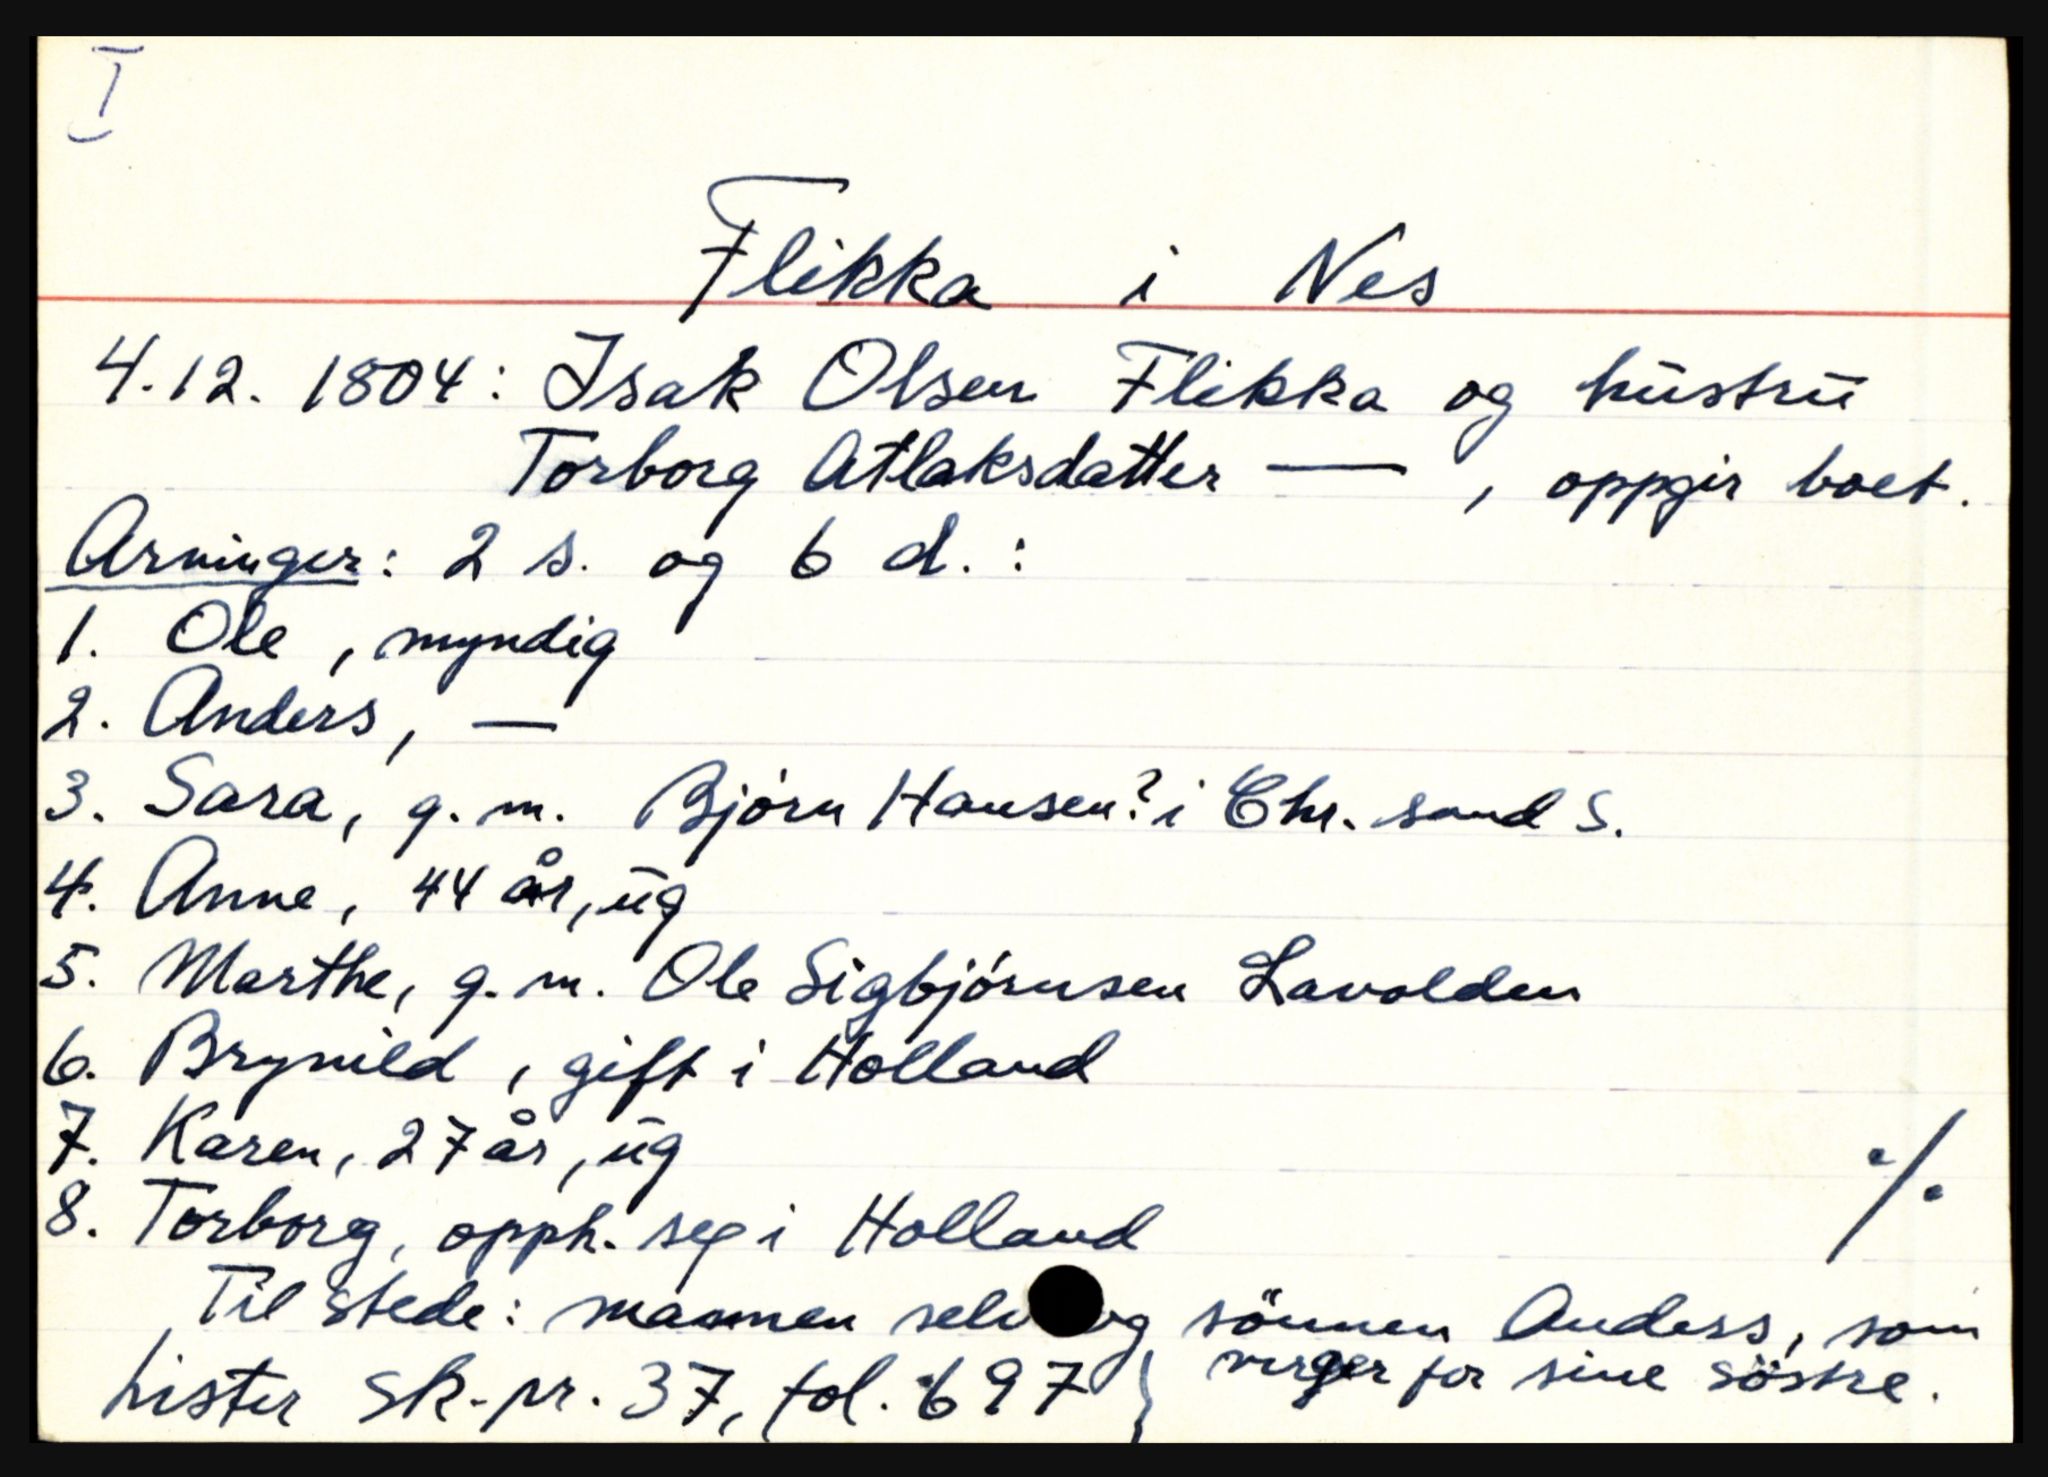 I
Flikka i Nes
4.12. 1804: Isak Olsen Flikka og hustru
Torborg Atlaksdatter — , oppgir boet.
Arninger: 2 s. og 6 d. :
1. Ole , myndig
2. Anders, —
3. Sara, g. m. Bjørn Hansen? i Chr. sand S.
4. Anne, 44 år, ug
5. Marthe, g. m. Ole Sigbjørnsen Lavolden
6. Brynild , gift i Holland
7. Karen, 27 år, ug
8. Torborg, opph. seg i Holland
./.
Til stede: mannen selv og sönnen Anders, som
verger for sine söstre.
Lister sk.pr. 37, fol. 697 }